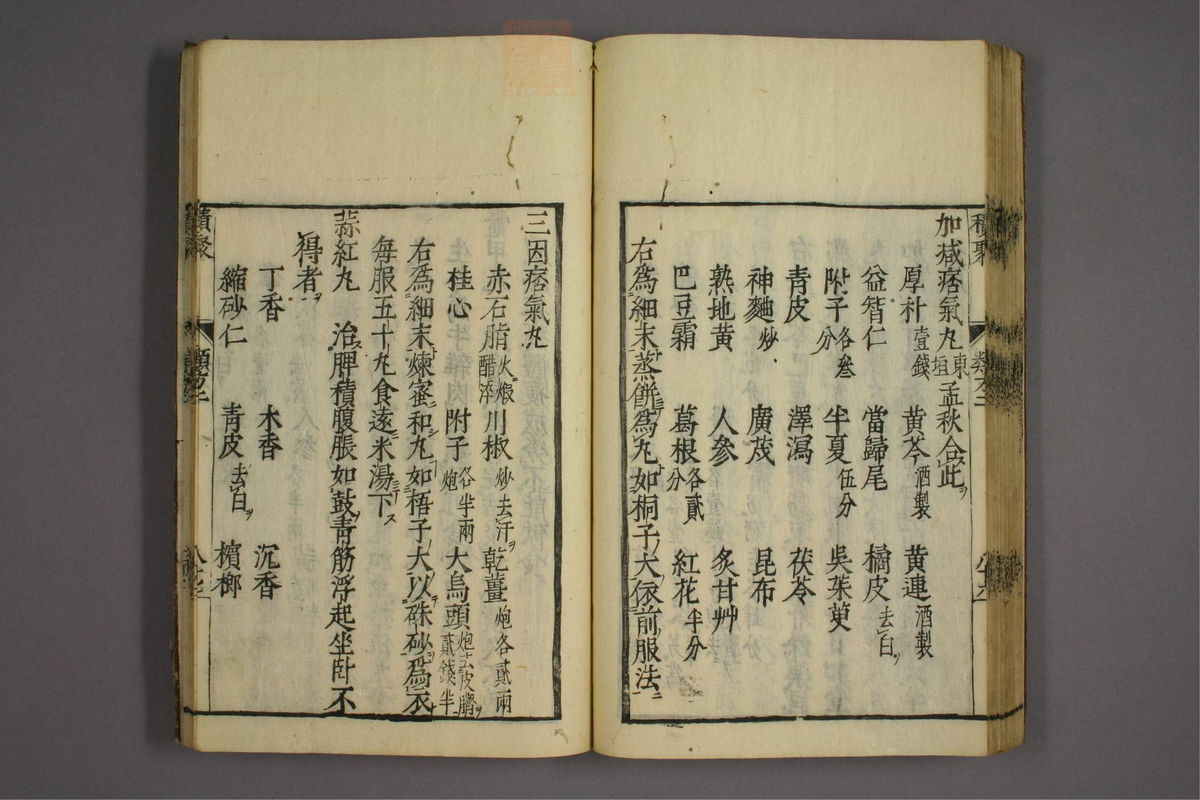 加减痞氣丸 東垣 孟秋合此ヲ
厚朴 壹錢 黄芩 酒製 黄連 酒製
益智仁 當歸尾 橘皮 去白ヲ
附子 各叄分 半夏 伍分 吳茱萸
青皮 澤瀉 茯苓
神麯 炒 廣茂 昆布
熟地黄 人參 炙甘艸
巴豆霜 葛根 各貳分 紅花 半分
右爲細末蒸餅爲丸如桐子大依前服法
三因痞氣丸
赤石脂 火煅醋淬 川椒 炒去汗ヲ 乾薑 炮各貳兩
桂心 附子 各半兩炮 大烏頭 炮去皮臍ヲ貳錢半
右爲細末煉蜜和丸如梧子大以硃砂爲衣
每服五十丸食遠米湯下ス
蒜紅丸 治脾積腹脹如鼓青筋浮起坐卧不
得者ヲ
丁香 木香 沉香
縮砂仁 青皮 去白ヲ 檳榔
積聚
類方二